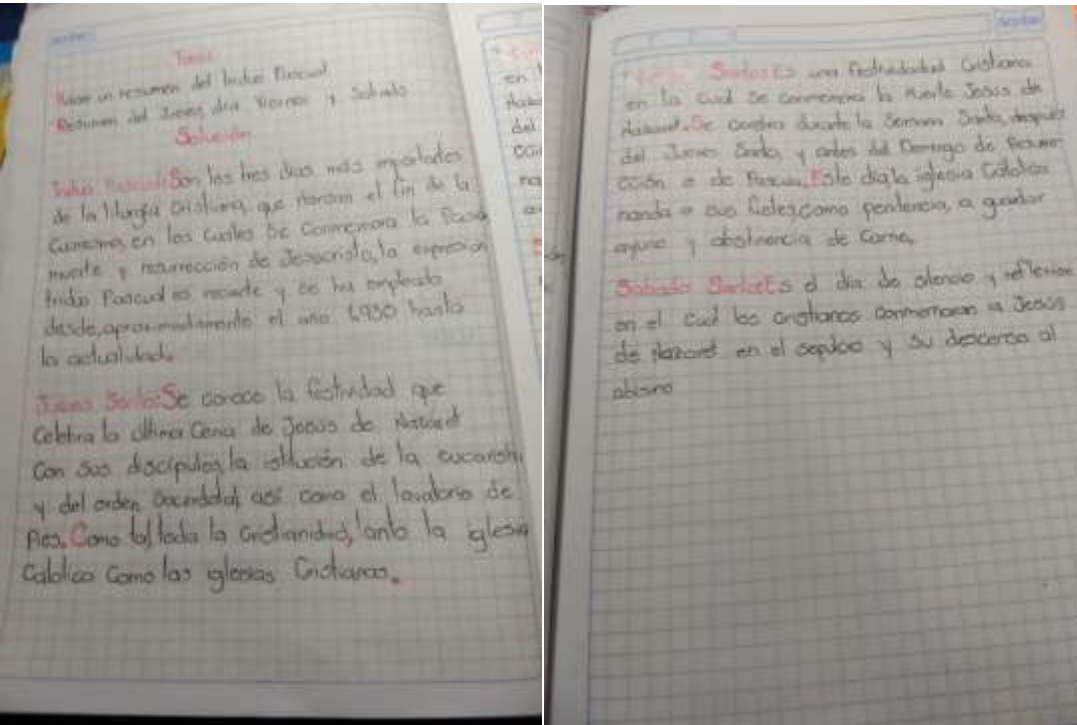 Tarea
Hacer un resumen del triduo Pascual
Resumen del Jueves, día Viernes y Sabado
Solución
Triduo Pascual: Son los tres dias más importantes
de la liturgia cristiana, que marcan el fin de la
Cuaresma, en los cuales se conmemora la Pasion
muerte y resurrección de Jesucristo, la expresion
triduo Pascual es reciente y se ha empleado
desde, aproximadamente el año 1.930 hasta
la actualidad.
Jueves Santo: Se conoce la festividad que
Celebra la última Cena de Jesus de Nazaret
Con sus discípulos, la istitución de la eucaristi
y del orden Sacerdotal, asi como el lavatorio de
Pies. Como tal toda la Cristianidad, tanto la iglesia
Catolica Como las iglesias Cristianas.
Santo: Es una festividad Cristiana
en la cual se conmemora la Muerte Jesús de
Nazaret. Se celebra durante la Semana Santa, después
del Jueves Santo, y antes del Domingo de Resurre-
cción o de Pascua. Este dia la iglesia Catolica
manda a sus fieles, como penitencia, a guardar
ayuno y abstinencia de Carne.
Sabado Santo: Es el día de silencio y reflexion
en el cual los cristianos conmemoran a Jesús
de Nazaret en el sepulcro y su descenso al
abismo